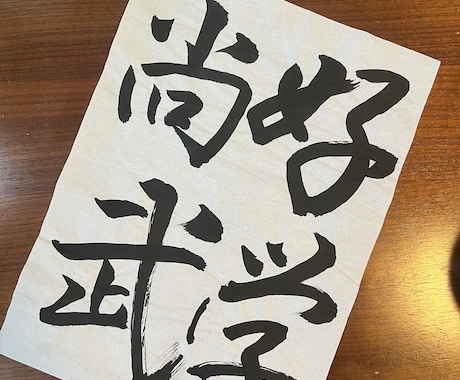 好学
尚武